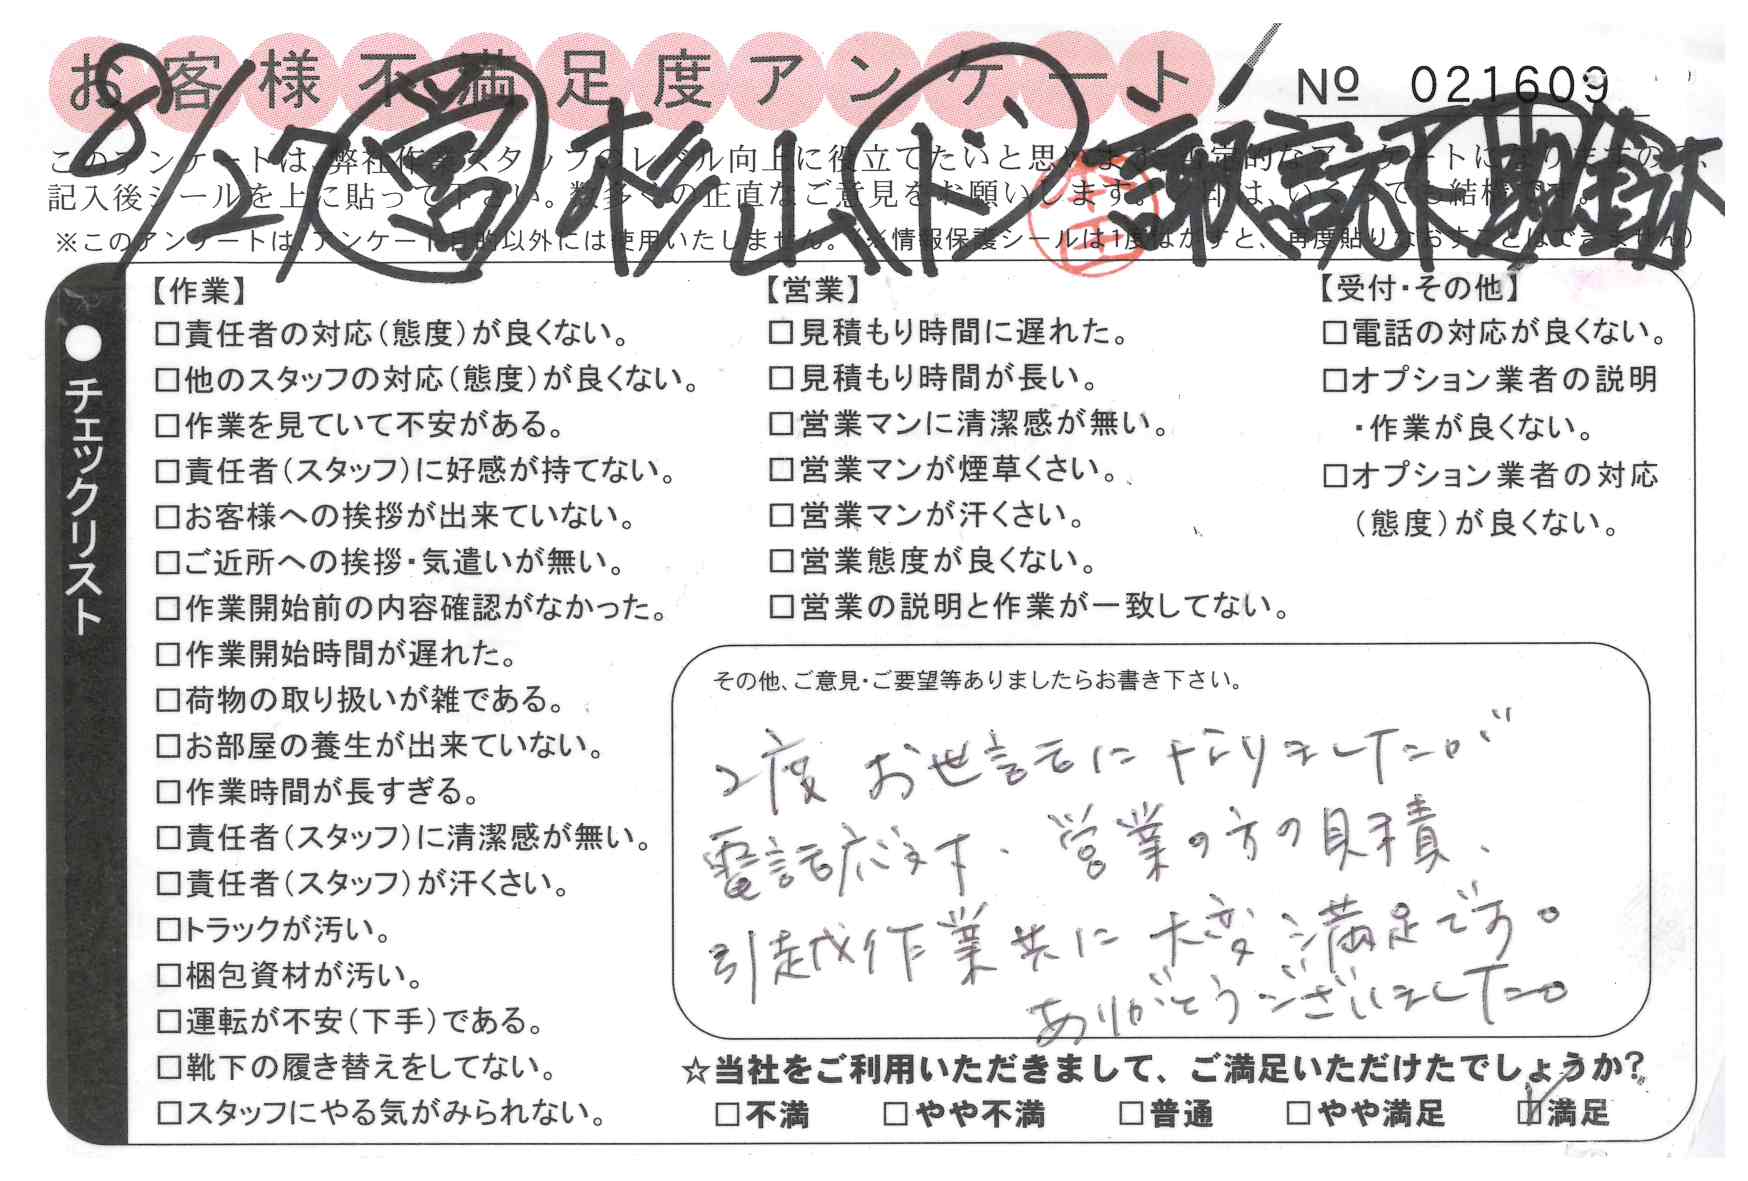 お客様不満足度アンケート
№ 021609
8/27 営 杉山 ド 諏訪下
このアンケートは、弊社作業スタッフのレベル向上に役立てたいと思います。
記入後シールを上に貼って下さい。数多くの正直なご意見をお願いします。
※このアンケートは、アンケート目的以外には使用いたしません。(※情報保護シールは1度はがすと、再度貼りなおすことはできません)
●チェックリスト
【作業】
□責任者の対応(態度)が良くない。
□他のスタッフの対応(態度)が良くない。
□作業を見ていて不安がある。
□責任者(スタッフ)に好感が持てない。
□お客様への挨拶が出来ていない。
□ご近所への挨拶・気遣いが無い。
□作業開始前の内容確認がなかった。
□作業開始時間が遅れた。
□荷物の取り扱いが雑である。
□お部屋の養生が出来ていない。
□作業時間が長すぎる。
□責任者(スタッフ)に清潔感が無い。
□責任者(スタッフ)が汗くさい。
□トラックが汚い。
□梱包資材が汚い。
□運転が不安(下手)である。
□靴下の履き替えをしてない。
□スタッフにやる気がみられない。
【営業】
□見積もり時間に遅れた。
□見積もり時間が長い。
□営業マンに清潔感が無い。
□営業マンが煙草くさい。
□営業マンが汗くさい。
□営業態度が良くない。
□営業の説明と作業が一致してない。
【受付・その他】
□電話の対応が良くない。
□オプション業者の説明
・作業が良くない。
□オプション業者の対応
(態度)が良くない。
その他、ご意見・ご要望等ありましたらお書き下さい。
2度お世話になりましたが
電話応対、営業の方の見積、
引越作業共に大変満足です。
ありがとうございました。
☆当社をご利用いただきまして、ご満足いただけたでしょうか?
□不満 □やや不満 □普通 □やや満足 ☑満足